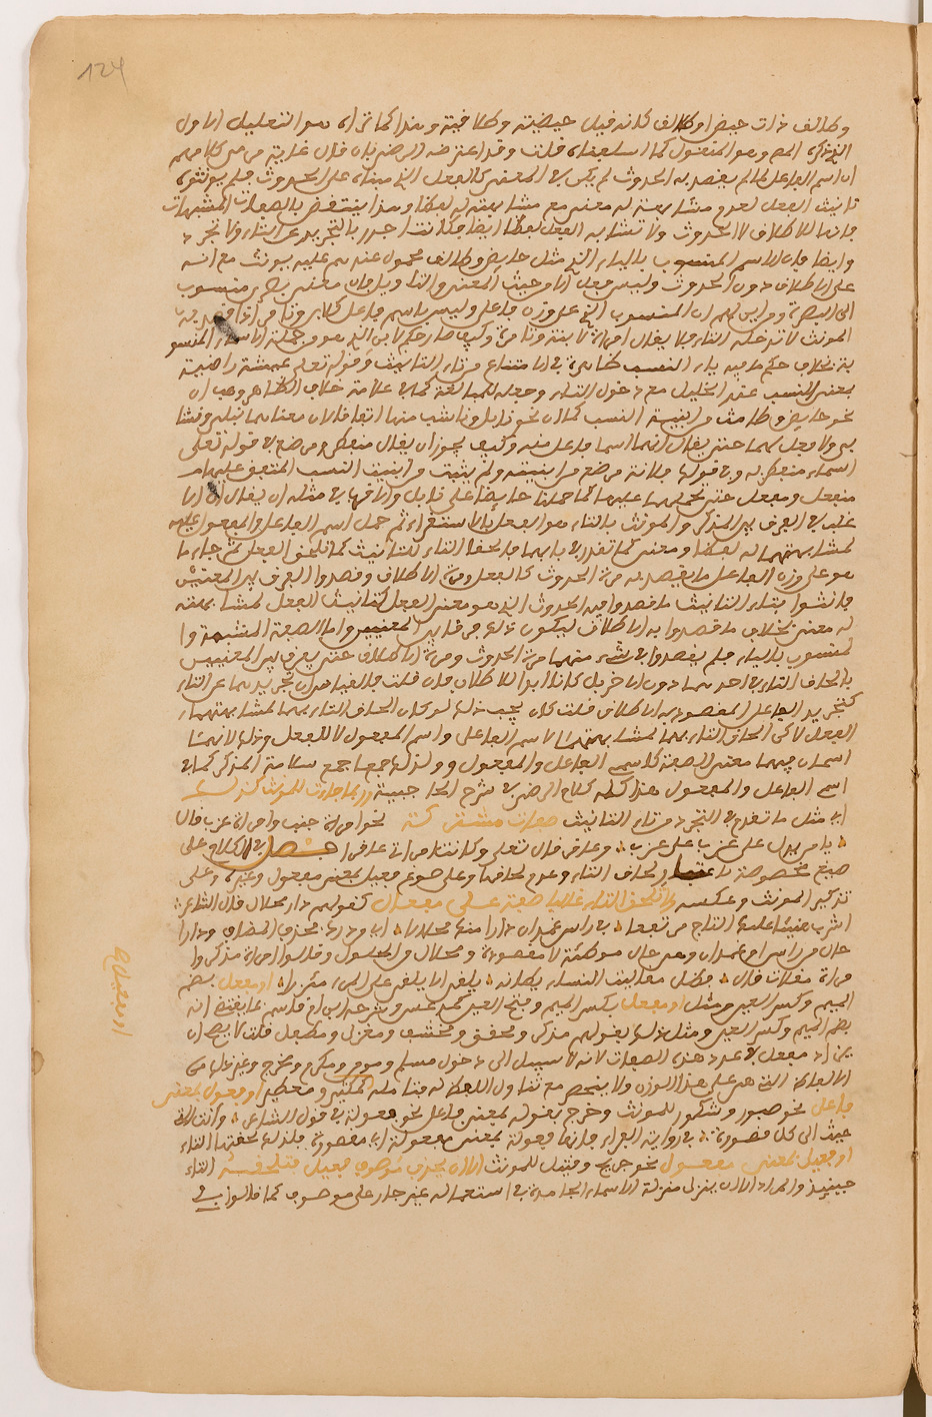 124
وطالق ذات حيض او طلاق كانه قيل حيضية وطلاقية وهذا كما ترى هو التعليل الاول
الذي ذكره المص وهو المنقول كما اسلفناه قلت وقد اعترضه الرضي بان قال غاية مرامهم
ان اسم الفاعل لما لم يقصد به الحدوث لم يكن في المعنى كالفعل الذي مبناه على الحدوث فلم يؤنثوه
تانيث الفعل لعدم مشابهته له معنى مع مشابهته له لفظا وهذا ينتقض بالصفات المشبهات
فانها للاطلاق لا الحدوث ولا تشابه الفعل لفظا ايضا فكانت اجدر بالتجريد عن التاء ولا تجرد
وايضا فان الاسم المنسوب بالياء الذي مثل حايض وطالق محمول عندهم عليه يؤنث مع انه
على الاطلاق دون الحدوث وليس بفعل الا من حيث المعنى والتاويل فان معنى بصري منسوب
الى البصرة وايس لهم ان المنسوب الذي على وزن فاعل وليس باسم فاعل كلابن وتامر اذا قصد به
المونث لا تدخله التاء فلا يقال امراة لابنة وتامرة وكيف صار حكم لابن الذي هو من جملة الاسماء المنسو
بة بخلاف حكم ما فيه ياء النسب كبصري في الامتناع من تاء التانيث وقوله تعلى عيشة راضية
بمعنى النسب عند الخليل مع دخول التاء وجعله للمبالغة كما في علامة خلاف الظاهر وهب ان
نحو حايض وطامث من ابنية النسب كما ان نحو نابل وناشب منها اتفاقا لان معناهما نبلي ونشا
بي ولا فعل لهما حتى يقال انهما اسما فاعل منه وكيف يجوز ان يقال منفطر ومرضع في قوله تعلى
السماء منفطر به وفي قولك فلانة مرضع من ابنيته ولم يثبت من ابنية النسب المتفق عليها
منفعل ومفعل حتى نحملهما عليهما كما حملنا حايضا على نابل والاقرب في مثله ان يقال ان الا
غلب في الفرق بين المذكر والمونث بالتاء هو الفعل بالاستقراء ثم حمل اسم الفاعل والمفعول عليه
لمشابهتهما له لفظا ومعنى كما تقدر في بابهما فالحقا التاء للتانيث كما تلحق الفعل ثم جاء ما
هو على وزن الفاعل ما يقصد به مرة الحدوث كالفعل ومرة الاطلاق وقصدوا الفرق بين المعنيين
فانثوا بتاء التانيث ما قصدوا فيه الحدوث الذي هو معنى الفعل كتانيث الفعل لمشابهته
له معنى بخلاف ما قصدوا به الاطلاق ليكون ذلك فرقا بين المعنيين واما الصفة المشبهة وا
لمنسوب بالياء فلم يقصدوا في شيء منهما مرة الحدوث ومرة الاطلاق حتى يفرق بين المعنيين
بالحاق التاء في احدهما دون الاخر بل كانا ابدا للاطلاق فان قلت فالقياس ان تجريدهما عن التاء
كتجريد الفاعل المقصود به الاطلاق قلت كان يجب ذلك لو كان الحاق التاء بهما لمشابهتهما
الفعل لا كن الحاق التاء بهما لمشابهتهما لاسم الفاعل واسم المفعول لا للفعل وذلك لانهما
اسمان فيهما معنى الصفة كاسمي الفاعل والمفعول ولذلك جمعا جمع سلامة المذكر كما في
اسم الفاعل والمفعول هذا كله كلام الرضي في شرح الحاجبية وربما جاءت للمونث كذلك
اي مثل ما تقدم في التجرد من تاء التانيث صفات مشتركة نحو امراة جنب وامراة عزب قال
يا من يدل على عزب على عزب وعاقر قال تعلى وكانت امراتي عاقرا فصل في الكلام على
صيغ مخصوصة باعتبار لحاق التاء وعدم لحاقها وعلى صوغ فعيل بمعنى مفعول وغيره وعلى
تذكير المونث وعكسه ولا تلحق التاء غالبا صفة على مفعال كقولهم دار محلال قال الشاعر
اشرب هنيئا عليك التاج مرتفعا في راس غمدان دارا منك محلالا اي في دارها بحذف المضاف ودارا
حال من راس او غمدان وهي حال موطئة لا مقصودة ومحلال والمعسول وقالوا امراة مذكر وا
مراة مقلات قال تظل مقاليت النساء يطانه يقلن الا يلقى على المرء مئزر او مفعل بضم
الميم وكسر العين ومثل او مفعل بكسر الميم وفتح العين
بضم الميم وكسر العين ومثل ذلك بقولهم مذكر ومحمق ومخشف ومغزل ومطفل قلت لا يصح ان
يراد مفعل في عدد هذه الصفات لانه لا سبيل الى دخول مسلم ومومن ومكرم ومخرج وغير ذلك من
الالفاظ التي هي على هذا الوزن ولا ينحصر مع تناول اللفظ له فتامله كمكثير ومعطير او فعول بمعنى
فاعل نحو صبور وشكور للمونث وخرج بقوله بمعنى فاعل نحو فعولة في قول الشاعر وانت التي
حببت الى كل قصورة في رواية الفراء فانها فعولة بمعنى مفعولة اي مقصورة فلذلك لحقتها التاء
او فعيل بمعنى مفعول نحو جريح وقتيل للمونث الا ان يحذف موصوف فعيل فتلحقه التاء
حينئذ والمراد الا ان ينزل منزلة الاسماء الجامدة في استعماله غير جار على موصوف كما قالوا في
او فعيل صح